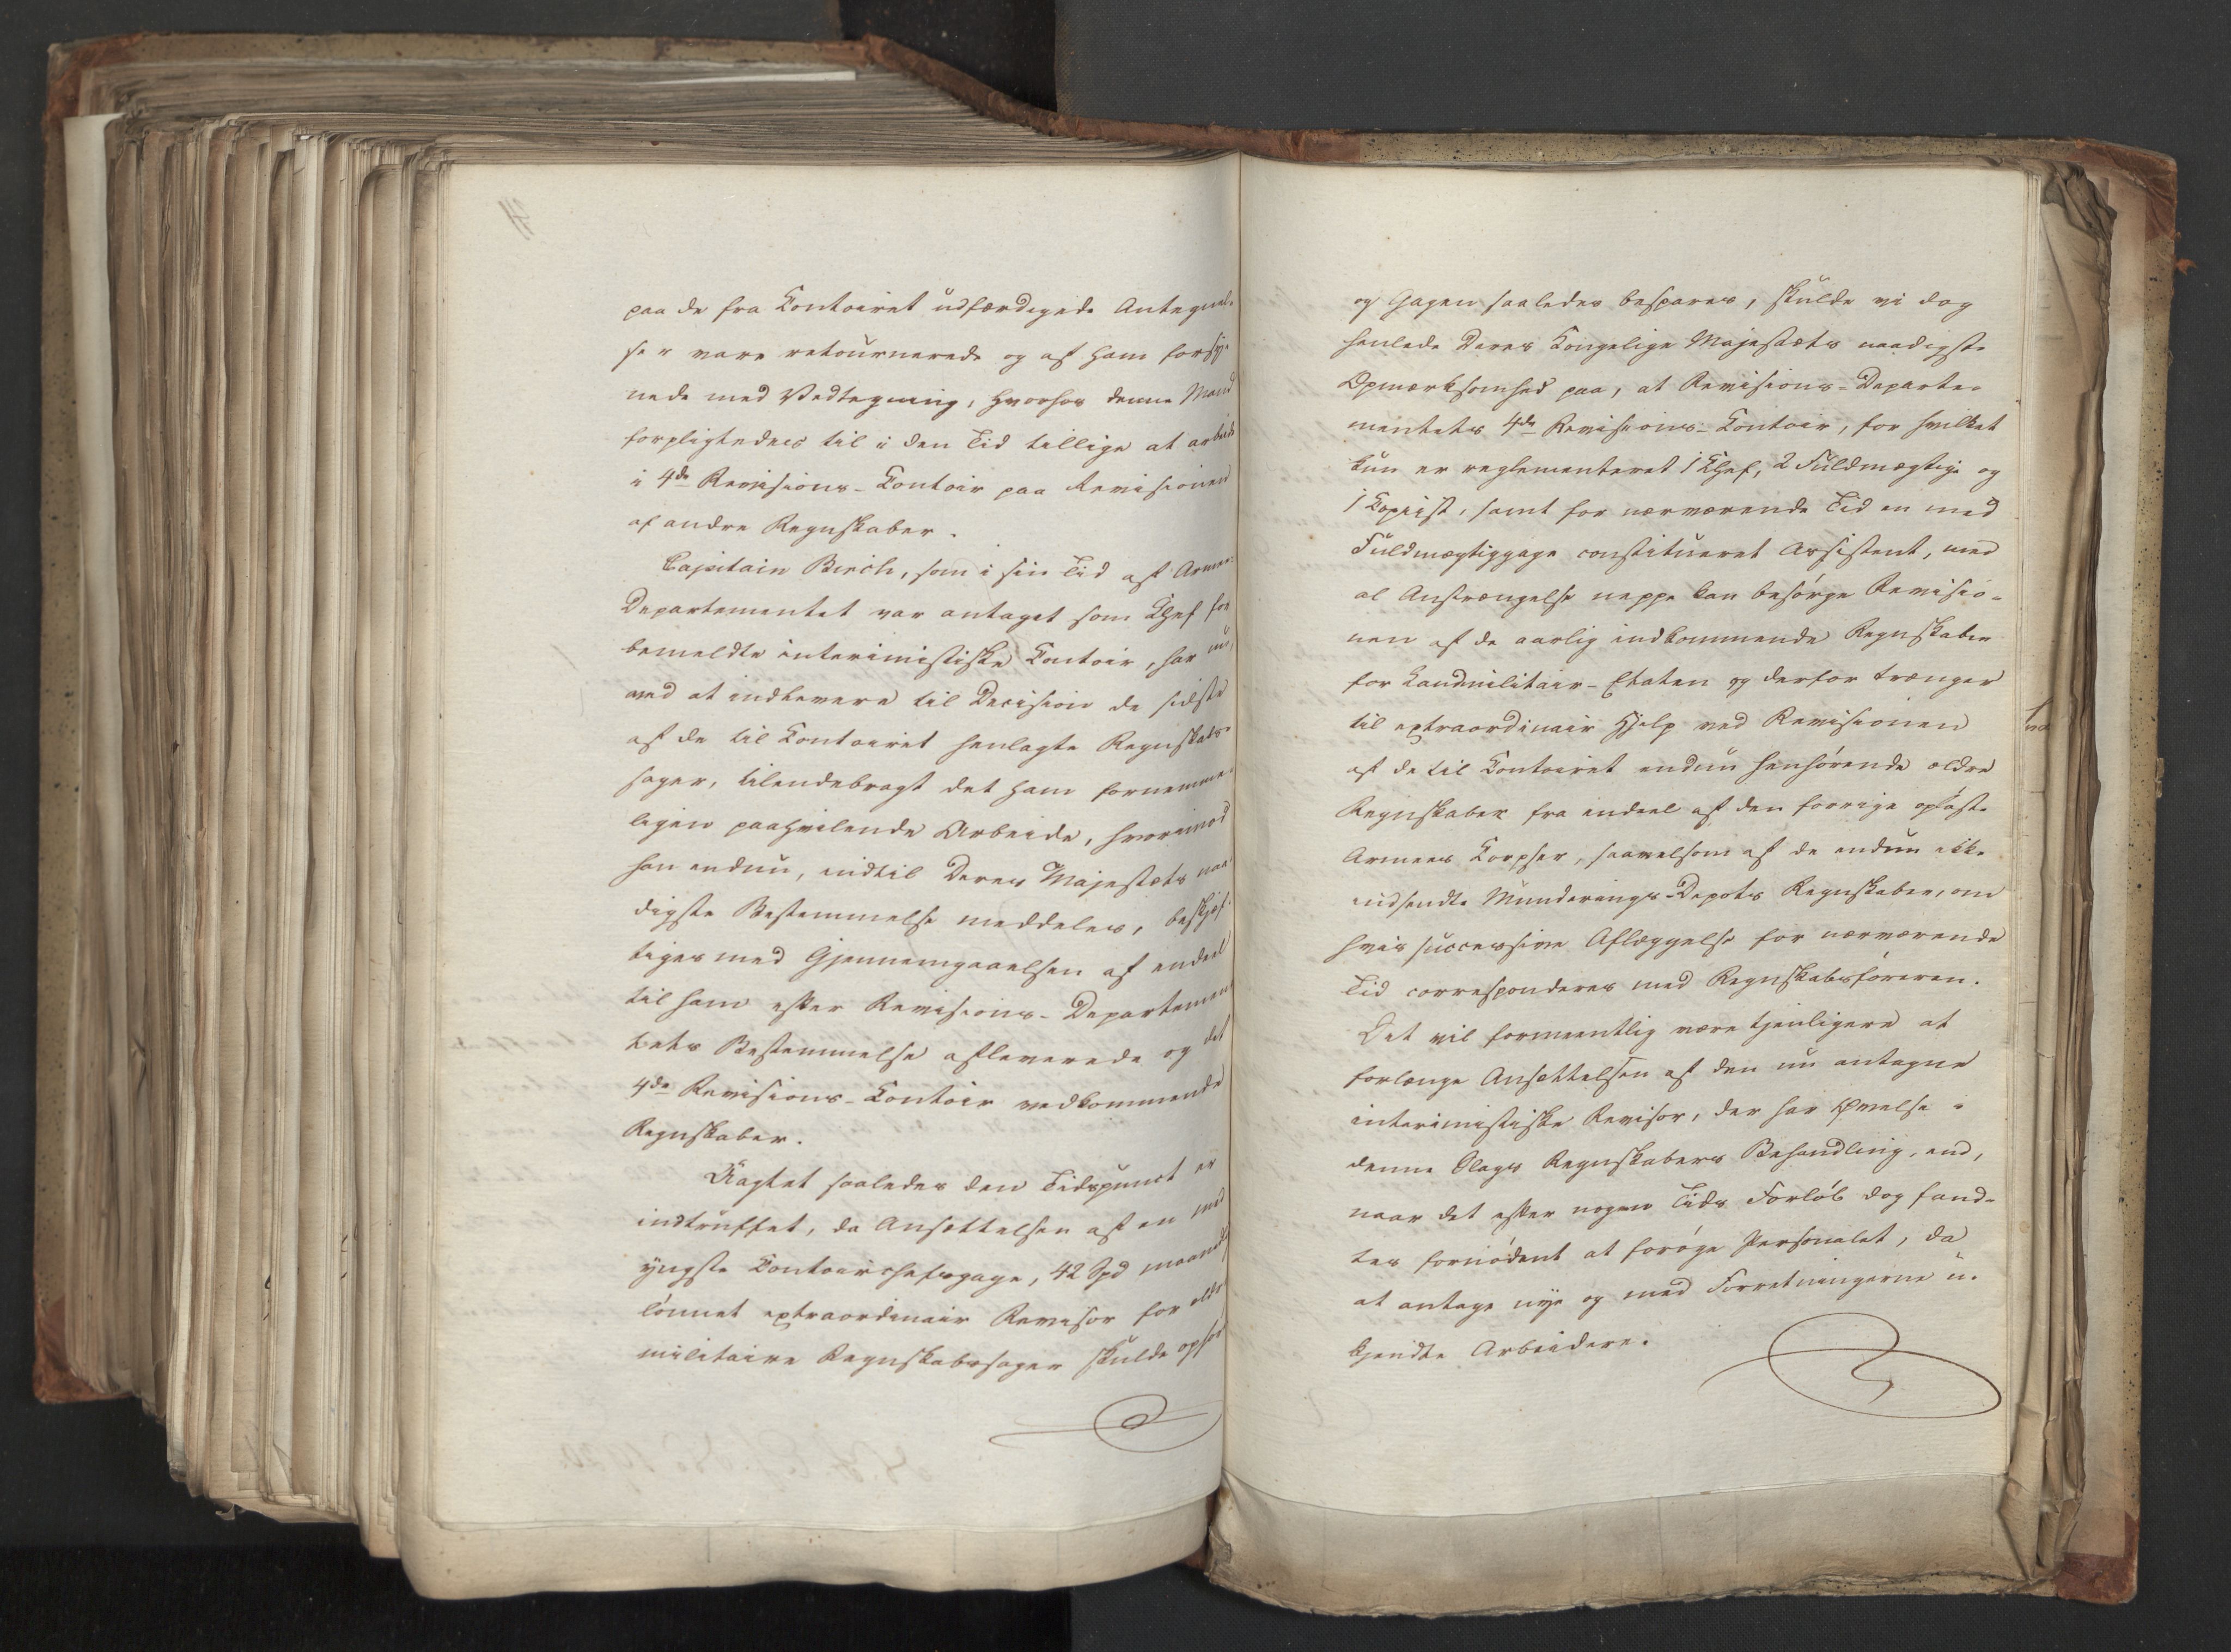 paa de fra Contoiret udfærdigede Antegnel-
ser vare retournerede og af ham forsy-
nede med Vedtegning, hvorhos denne Mand
forpligtedes til i den Tid tillige at arbeide
i 4de Revisions-Contoir paa Revisionen
af andre Regnskaber.
Capitain Birch, som i sin Tid af Armee-
Departementet var antaget som Chef for
bemeldte interimistiske Contoir, har nu,
ved at indlevere til Decision de sidste
af de til Contoiret henlagte Regnskabs-
sager, tilendebragt det ham fornemme-
ligen paahvilende Arbeide, hvorimod
han endnu, indtil Deres Majestæts naa-
digste Bestemmelse meddeles, beskjæf-
tiges med Gjennemgaaelsen af endeel
til ham efter Revisions-Departemen-
tets Bestemmelse afleverede og det
4de Revisions-Contoir vedkommende
Regnskaber.
Uagtet saaledes den Tidspunct er
indtruffet, da Ansættelsen af en med
yngste Contoirchefsgage, 42 Spd maanedlig
lønnet extraordinair Revisor for ældre
militaire Regnskabssager skulde ophøre
og Gagen saaledes bespares, skulde vi dog
henlede Deres Kongelige Majestæts naadigste
Opmærksomhed paa, at Revisions-Departe-
mentets 4de Revisions-Contoir, for hvilket
kun er reglementeret 1 Chef, 2 Fuldmægtige og
1 Copiist, samt for nærværende Tid en med
Fuldmægtiggage constitueret Assistent, med
al Anstrængelse neppe kan besørge Revisio-
nen af de aarlig indkommende Regnskaber
for Landmilitair-Etaten og derfor trænger
til extraordinair Hjelp ved Revisionen
af de til Contoiret endnu henhørende ældre
Regnskaber fra endeel af den forrige opløste
Armees Corpser, saavelsom af de endnu ikke
indsendte Munderings-Depots Regnskaber, om
hvis successive Aflæggelse for nærværende
Tid corresponderes med Regnskabsføreren.
Det vil formeentlig være tjenligere at
forlænge Ansættelsen af den nu antagne
interimistiske Revisor, der har Øvelse i
denne Slags Regnskabers Behandling, end,
naar det efter nogen Tids Forløb dog fand-
tes fornødent at forøge Personalet, da
at antage nye og med Forretningerne u-
kjendte Arbeidere.